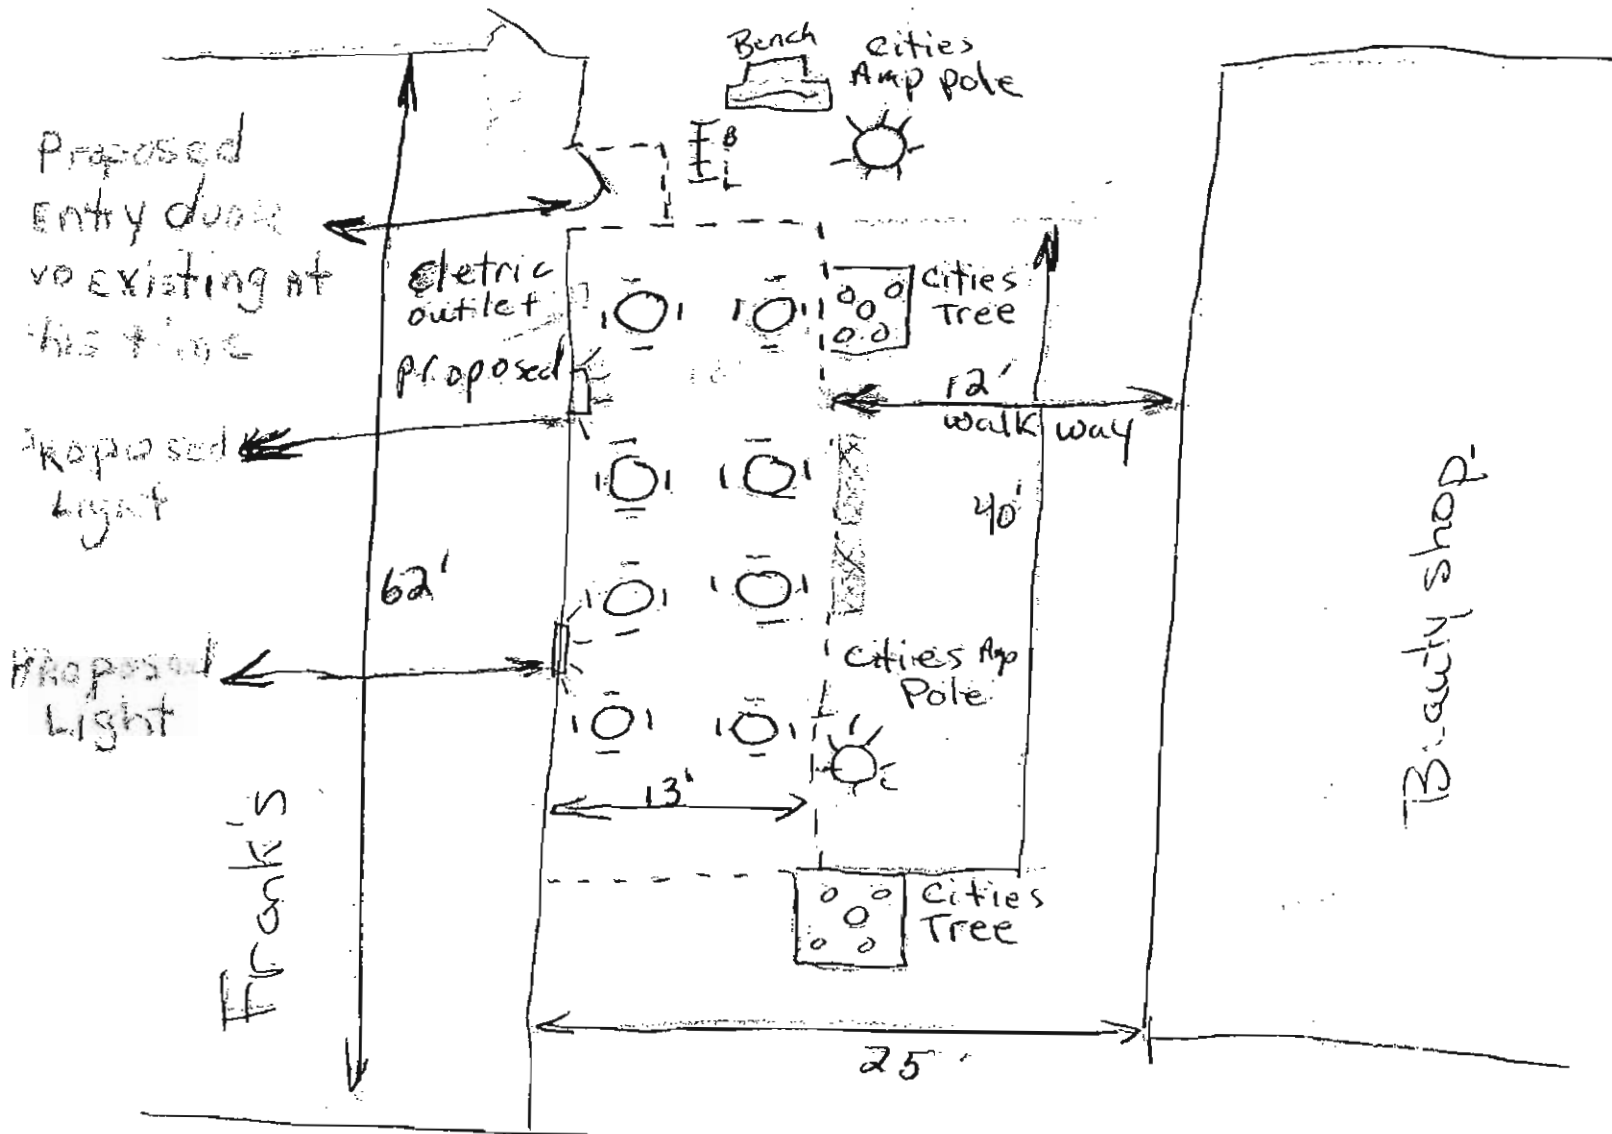 Bench
Cities
Amp pole
B
L
Proposed
Entry
existing at
this time
eletric
outlet
proposed
Cities
Tree
12'
walk way
Proposed
Light
40'
62'
Proposed
Light
Cities Amp
Pole
13'
Frank's
Beauty shop
Cities
Tree
25'